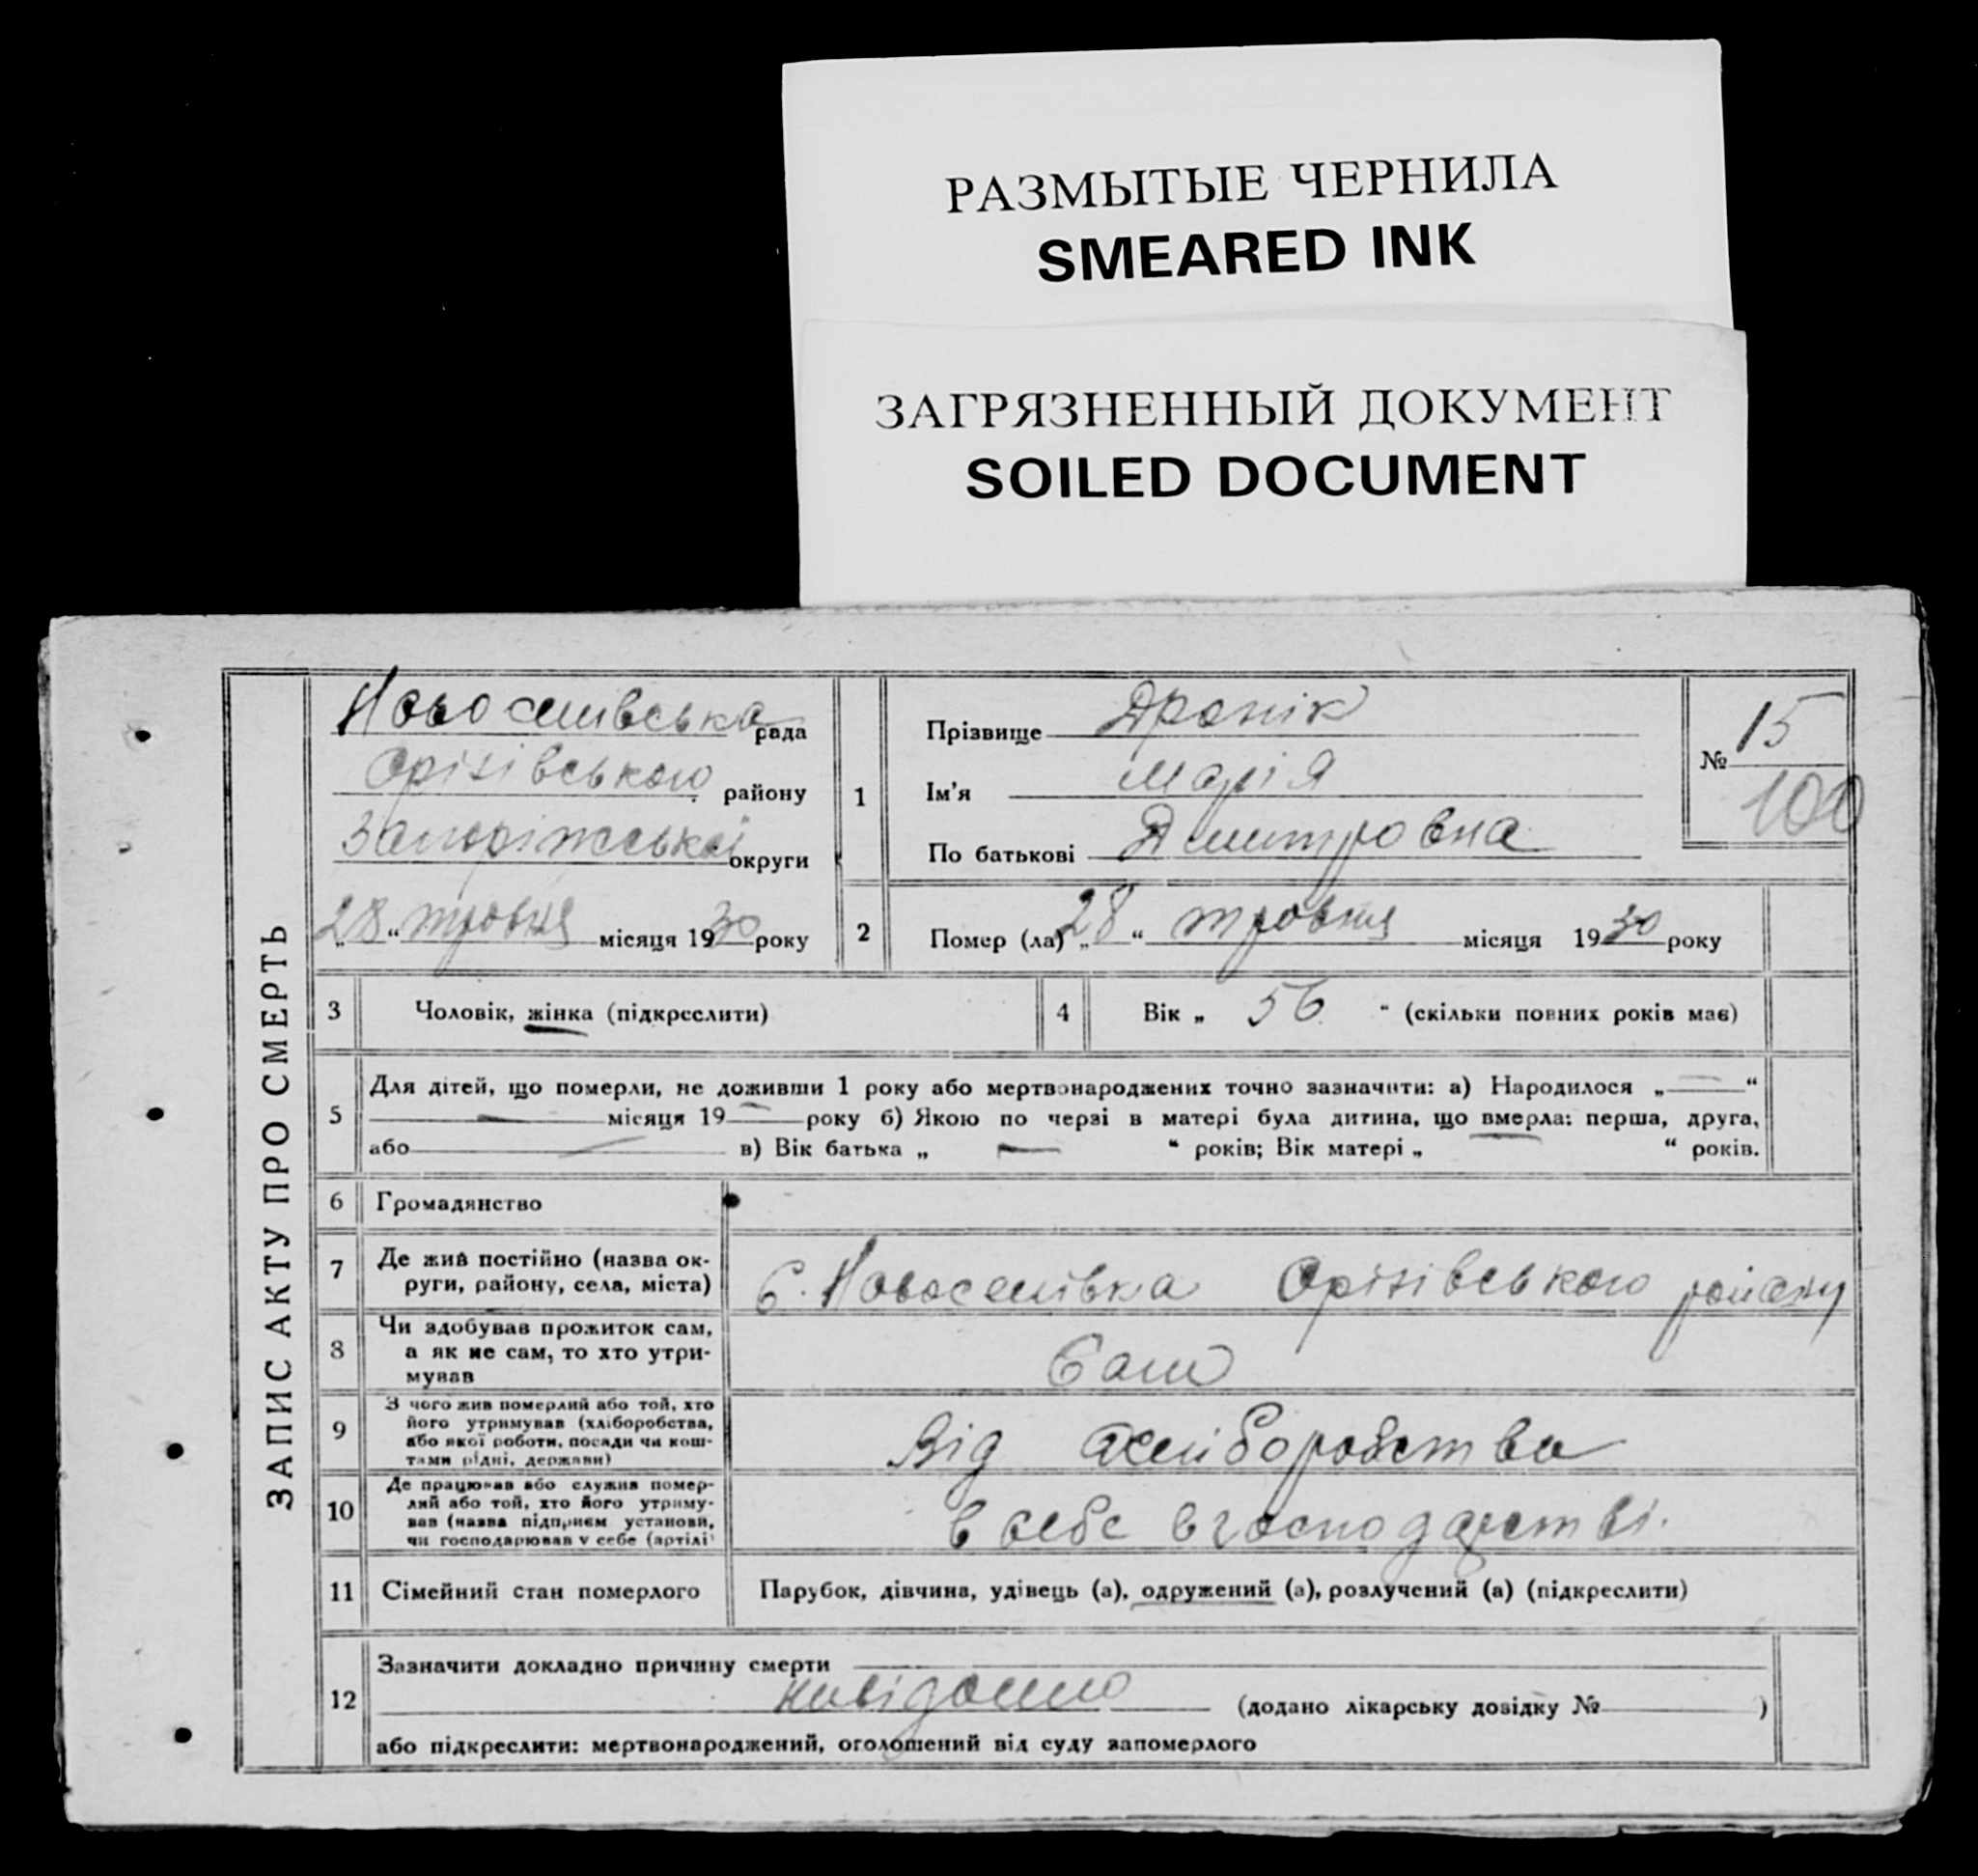 РАЗМЫТЫЕ ЧЕРНИЛА
SMEARED INK
ЗАГРЯЗНЕННЫЙ ДОКУМЕНТ
SOILED DOCUMENT
ЗАПИС АКТУ ПРО СМЕРТЬ
Новоселивська рада
Оріхівського району
Запоріжської округи
„28“ травня місяця 1930 року
1
Прізвище Дронік
Ім'я Марія
По батькові Дмитровна
№ 15
100
2
Помер (ла) „28“ травня місяця 1930 року
3 Чоловік, жінка (підкреслити)
4 Вік „ 56 “ (скільки повних років має)
5 Для дітей, що померли, не доживши 1 року або мертвонароджених точно зазначити: а) Народилося „—“
— місяця 19— року б) Якою по черзі в матері була дитина, що вмерла: перша, друга,
або — в) Вік батька „ — “ років; Вік матері „ “ років.
6 Громадянство
7 Де жив постійно (назва ок-
руги, району, села, міста)
С. Новоселівка Оріхівського району
8 Чи здобував прожиток сам,
а як не сам, то хто утри-
мував
Сам
9 З чого жив померлий або той, хто
його утримував (хліборобства,
або якої роботи, посади чи кош-
тами рідні, держави)
Від хліборобства
10 Де працював або служив помер-
лий або той, хто його утриму-
вав (назва підприєм установи,
чи господарював у себе (артілі)
в себе в господарстві.
11 Сімейний стан померлого
Парубок, дівчина, удівець (а), одружений (а), розлучений (а) (підкреслити)
12 Зазначити докладно причину смерти
невідомо (додано лікарську довідку № )
або підкреслити: мертвонароджений, оголошений від суду запомерлого